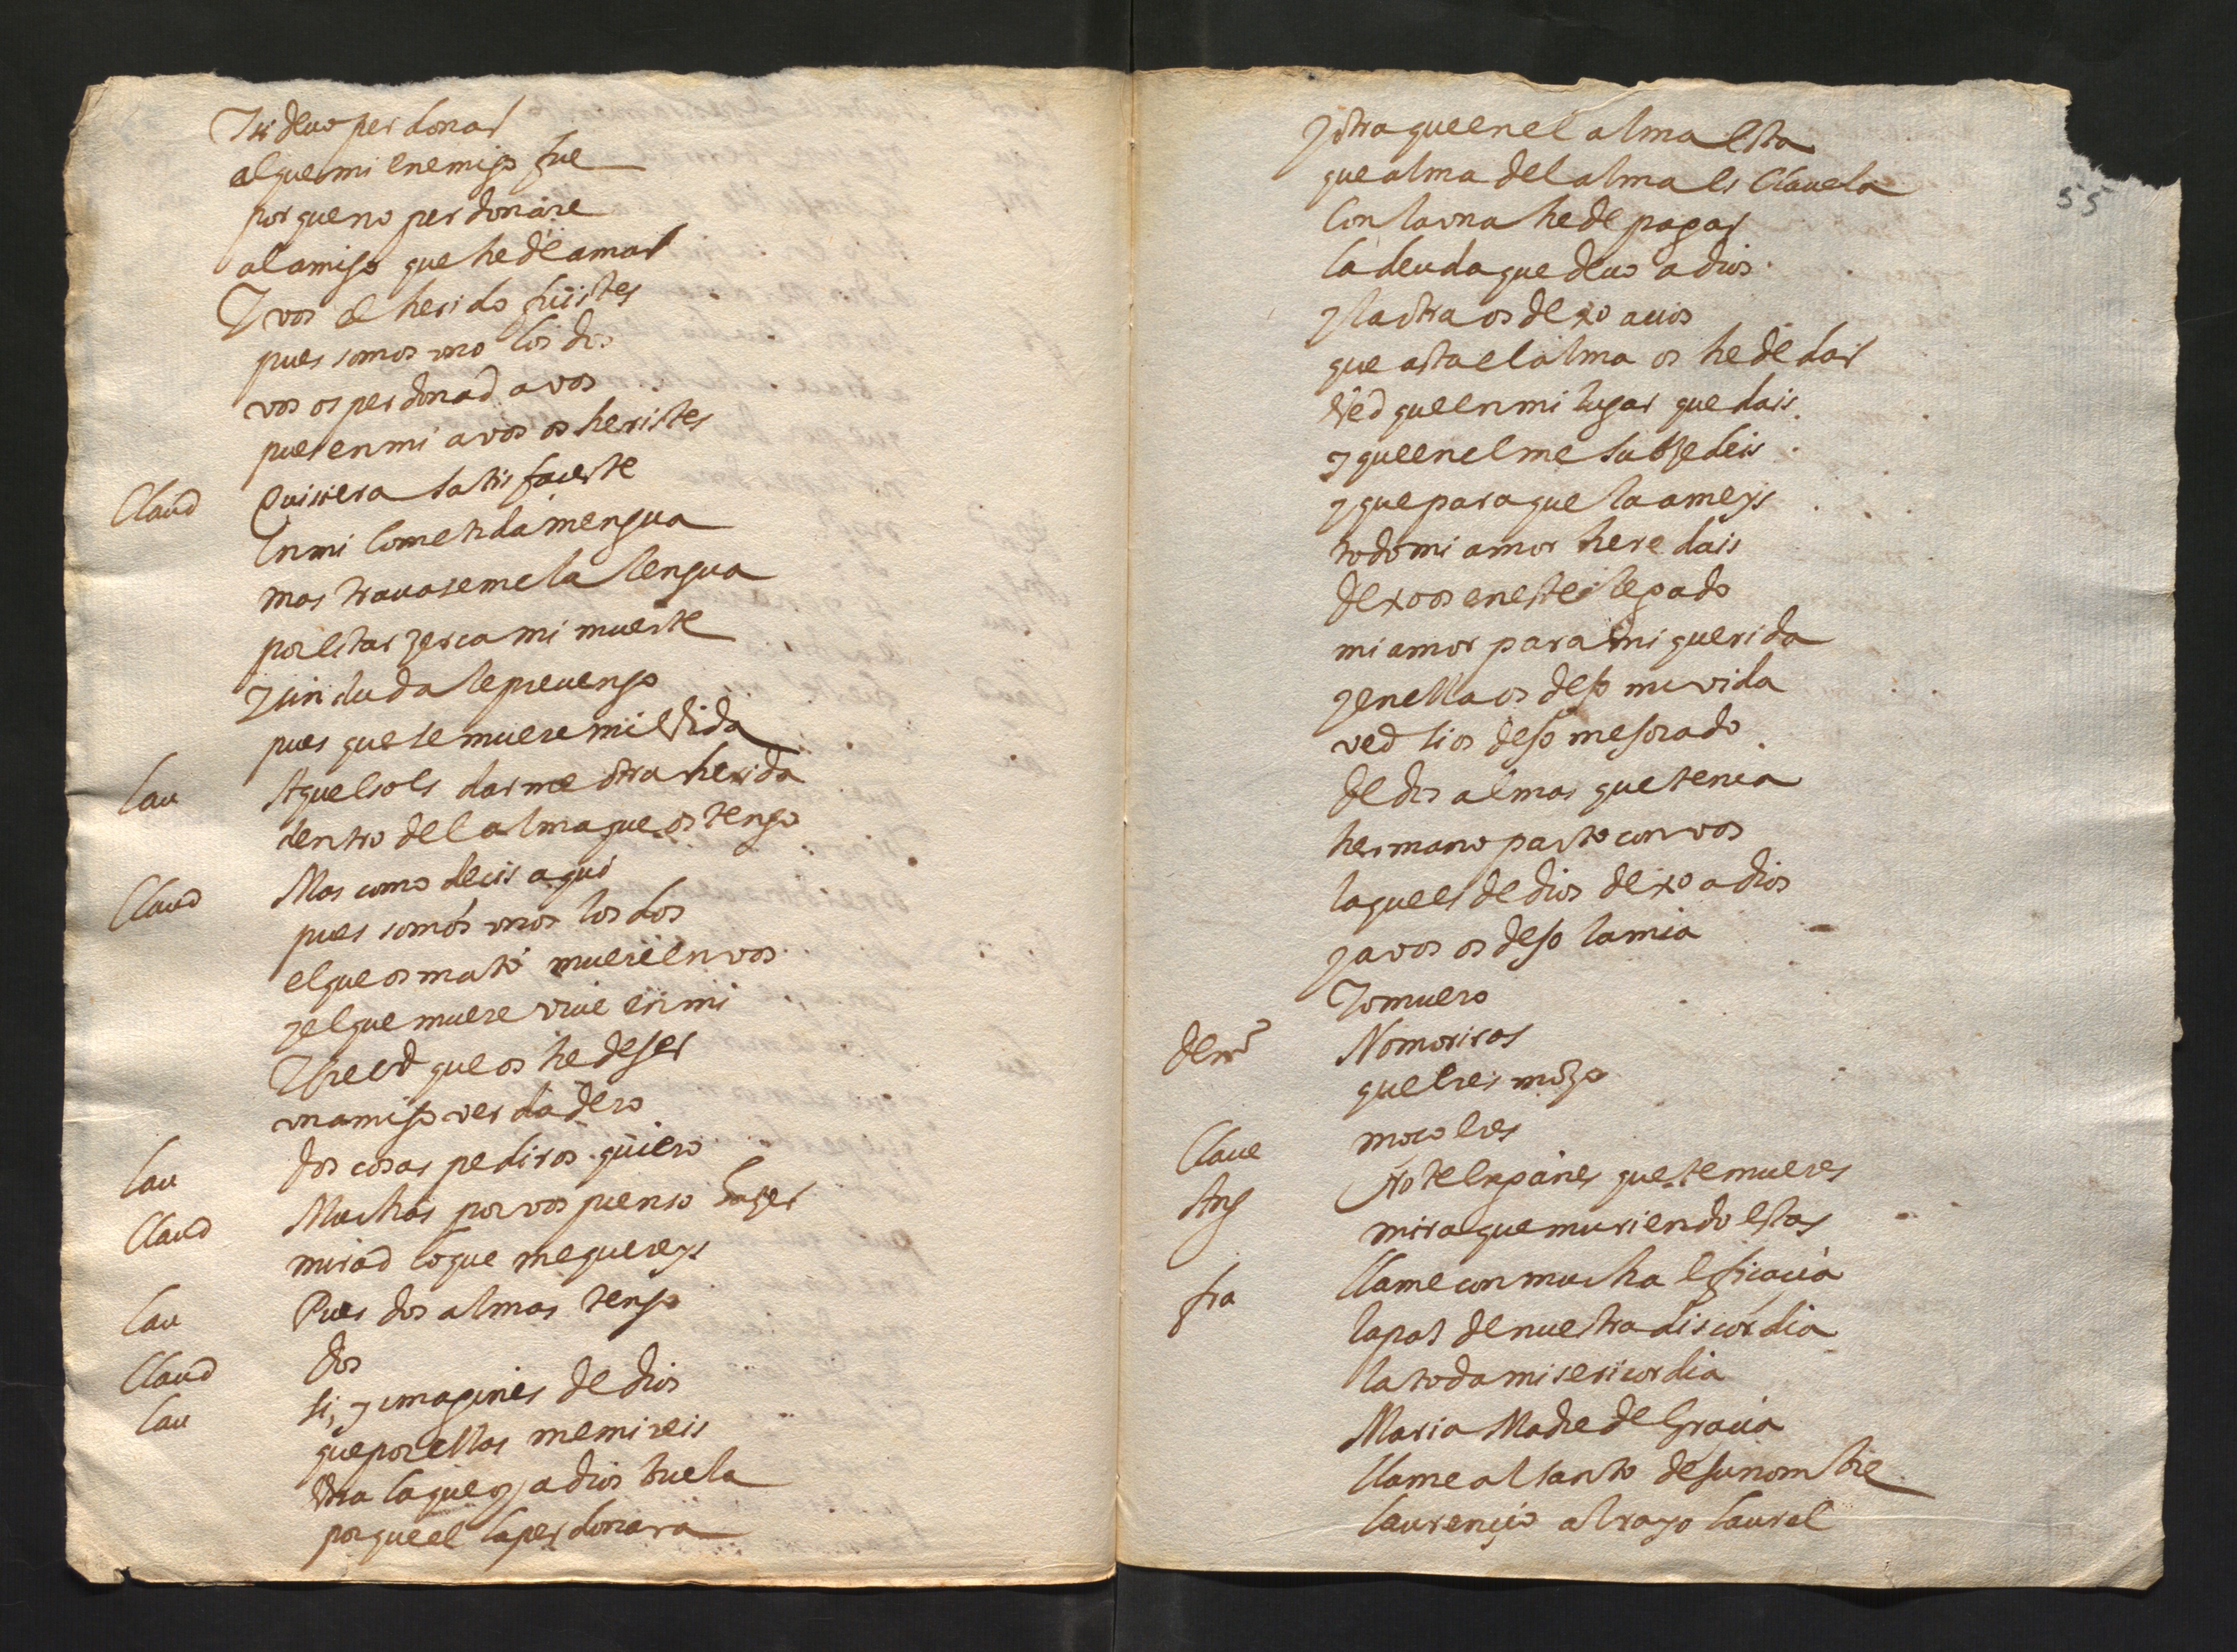 Y si deuo perdonar
al que mi enemigo fue
por que no perdonare
al amigo que he de amar
Y vos el herido fuistes
pues somos vno los dos
vos os perdonad a vos
pues en mi a vos os heristes
Claud Quisiera satisfacerte
en mi cometida mengua
mas trauaseme la lengua
por estar zerca mi muerte
y sin duda le preuengo
pues que se muere mi vida
Lau Aqueso es darme otra herida
dentro del alma que os tengo
Claud Mas como decis aqui
pues somos vnos los dos
el que os mató muere en vos
y el que muere viue en mi
Y creed que os he de ser
vn amigo verdadero
Lau dos cosas pediros quiero
Claud Muchas por vos pienso hazer
mirad lo que me quereys
Lau Pues dos almas tengo
Claud dos
Lau si, y imagines de dios
que por ellas mireis
vna la que oy a dios buela
porque el la perdonara
55
y otra que en el alma esta
que alma del alma es Clauela
Con la vna he de pagar
la deuda que deuo a dios
y la otra os dexo a uos
que asta el alma os he de dar
ved que en mi lugar quedais
y que en el me subzedeis
y que para que la ameys
todo mi amor heredais
dexoos en este legado
mi amor para mi querida
y en ella os dejo mi vida
ved si os dejo mejorado
de dos almas que tenia
hermano parto con vos
la que es de dios dexo a dios
y a vos os dejo la mia
Yo muero
No moriras
que eres mozo
Claue moço eres
Ang No te espanes que te mueres
mira que muriendo estas
fra llame con mucha eficacia
la paz de nuestra discordia
la toda misericordia
Maria Madre de Gracia
llame al santo de su nombre
laurençio al rayo laurel